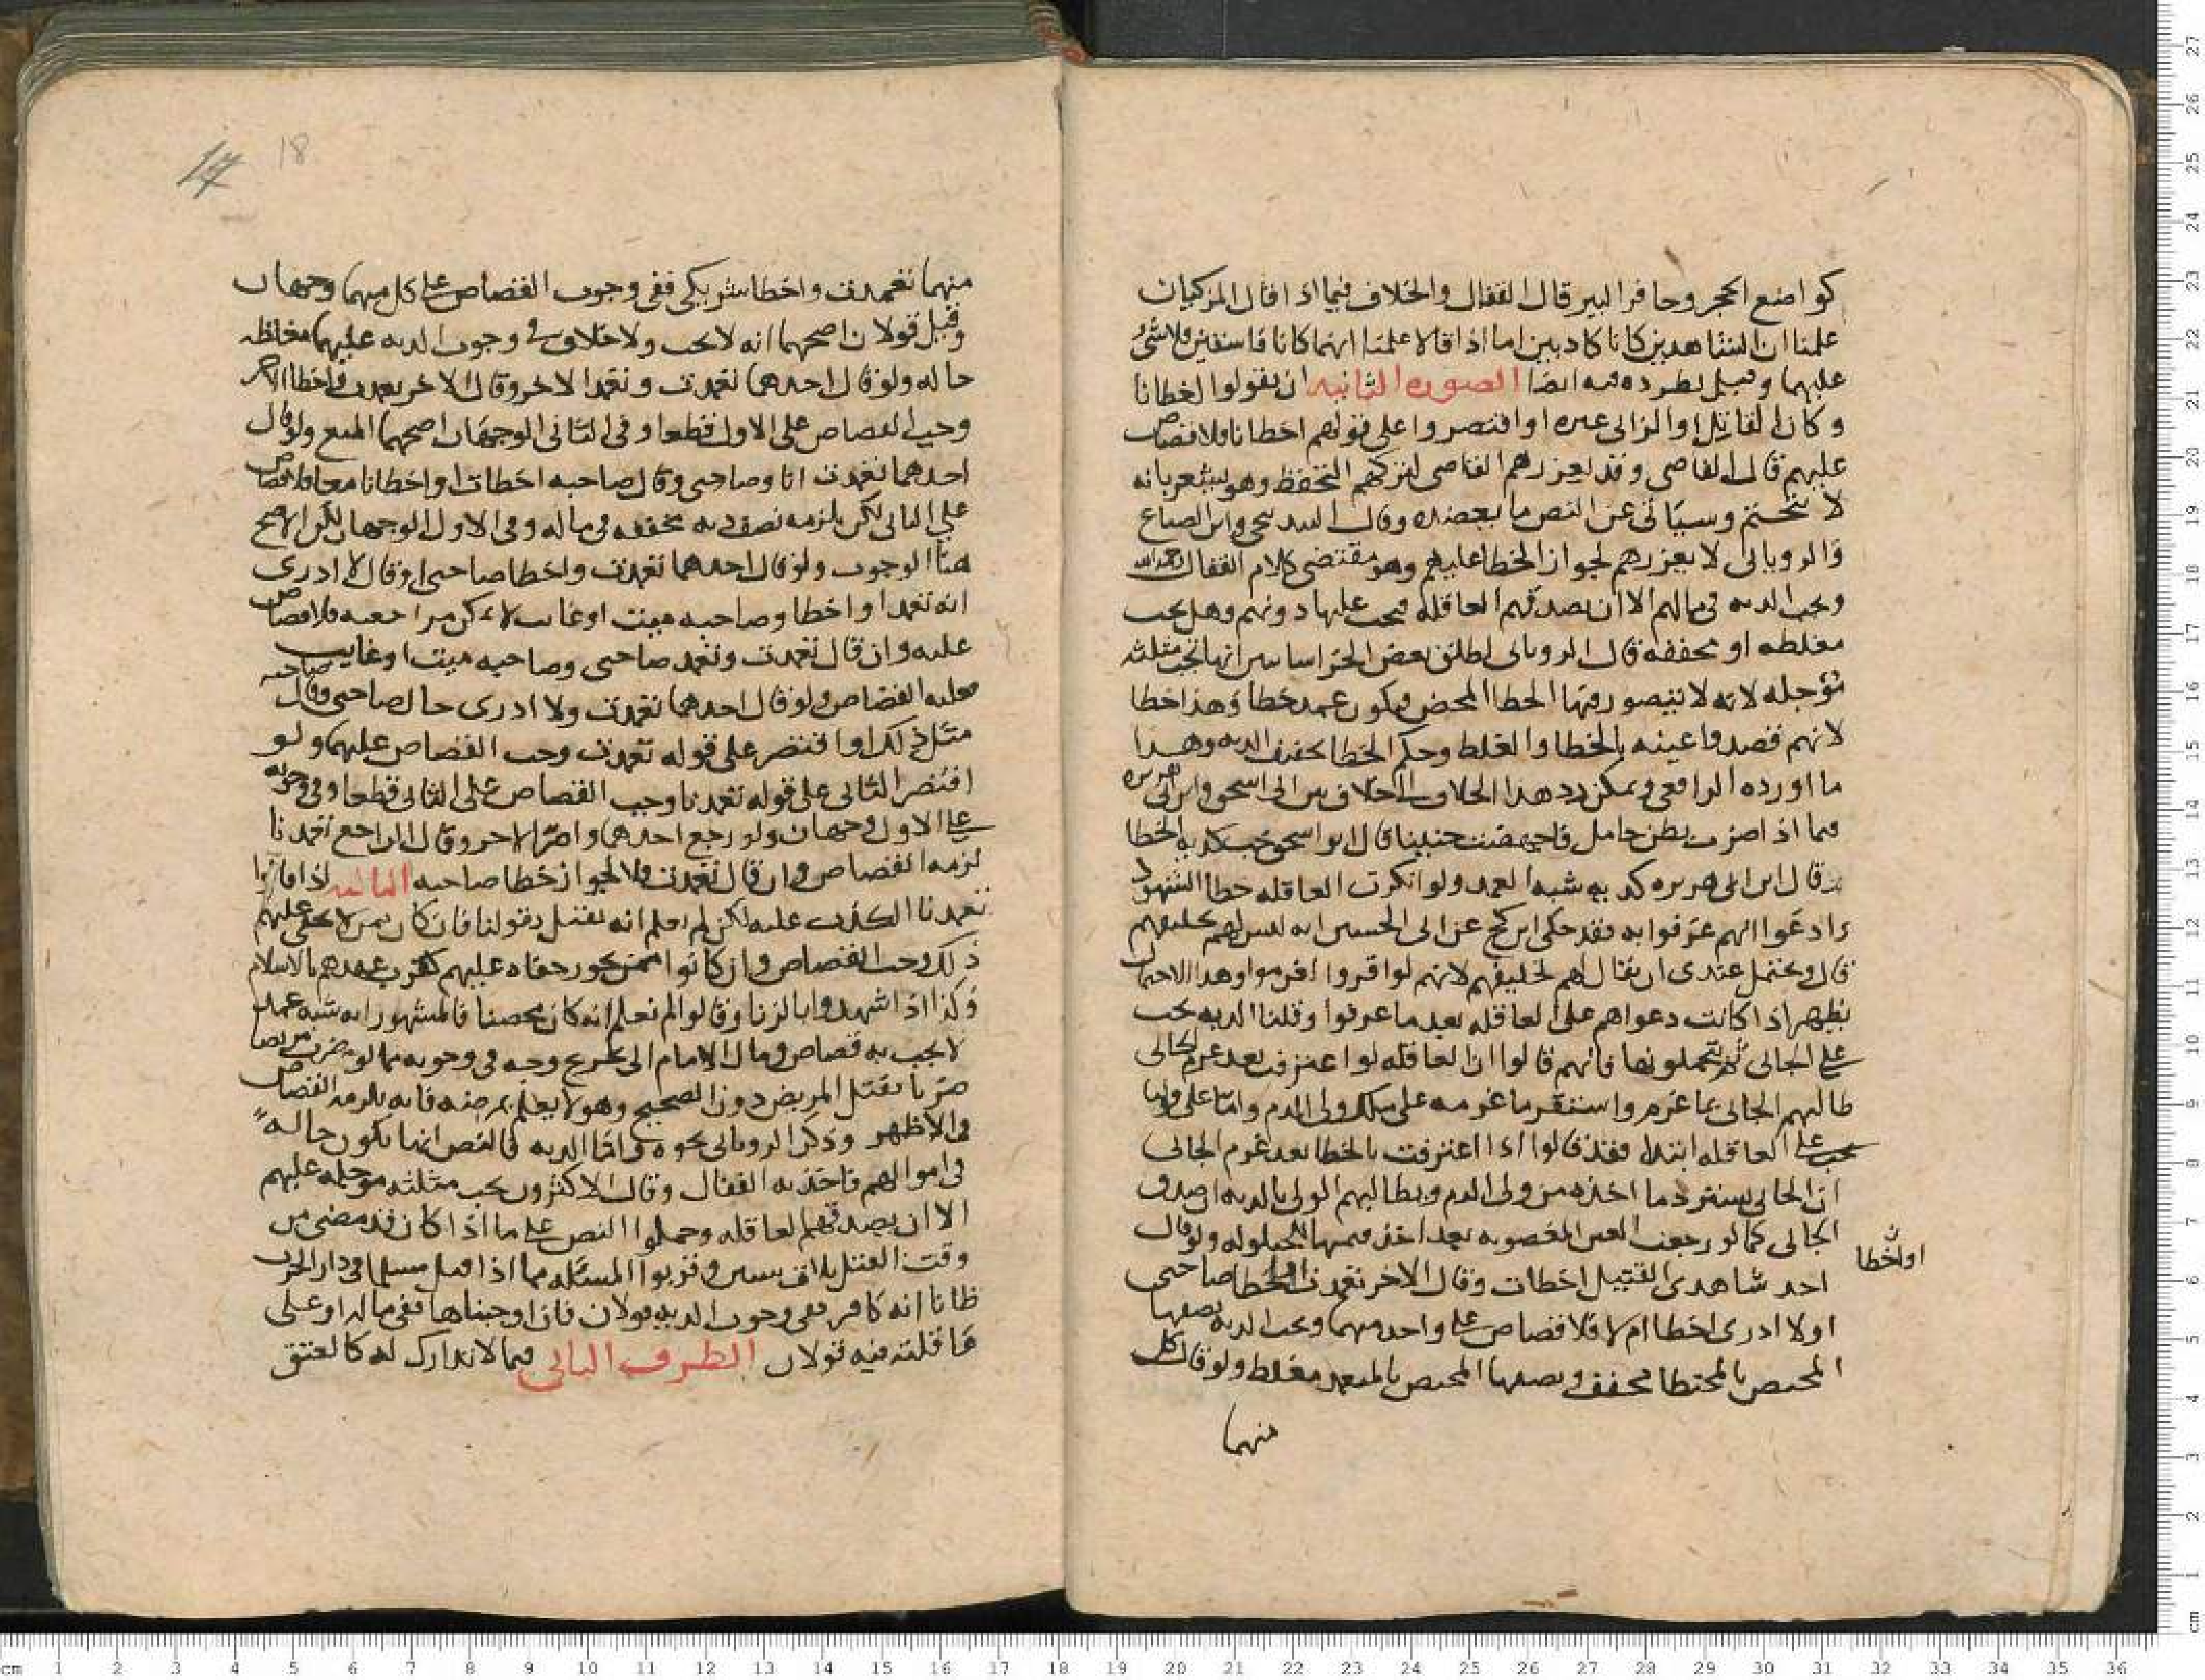 كواضع الحجر وحافر البير قال القفال والخلاف فيما اذا قال المزكيان
علمنا ان الشاهدين كانا كاذبين اما اذا قالا علمنا انهما كانا فاسقين فلا شئ
عليهما وقيل بطرده فيه ايضا الصورة الثانيه ان يقولوا اخطانا
وكان القاتل او الزاني غيره او اقتصروا على قولهم اخطانا فلا قصاص
عليهم قال القاضي وقد يعزرهم القاضي لتركهم التحفظ وهو يشعر بانه
لا يتحتم وسياتي عن النص ما يعضده وقال البندنيجي وابن الصباغ
والروياني لا يعزرهم لجواز الخطا عليهم وهو مقتضى كلام القفال رحمه الله
ويجب الديه في مالهم الا ان يصدقهم العاقله فيجب عليها دونهم وهل يجب
مغلظه او مخففه قال الروياني اطلق بعض الخراسانيين انها تجب مثلثه
مؤجله لانه لا يتصور فيها الخطا المحض فيكون عمد خطا وهذا خطا
لانهم قصدوا عينه بالخطا والغلط وحكم الخطا تخفيف الديه وهذا
ما اورده الرافعي ويمكن رد هذا الخلاف الى الخلاف بين ابي اسحق وابن ابي هريره
فيما اذا ضرب بطن حامل فاجهضت جنينا قال ابو اسحق تجب كديه الخطا
وقال ابن ابي هريره كديه شبه العمد ولو انكرت العاقله خطا الشهود
وادعوا انهم عرفوا به فقد حكى ابن كج عن ابي الحسين انه ليس لهم تحليفهم
قال ويحتمل عندي ان يقال لهم تحليفهم لانهم لو اقروا اغرموا وهذا الاحتمال
يظهر اذا كانت دعواهم على العاقله بعد ما غرموا وقلنا الديه تجب
على الجاني ثم يتحملونها فانهم قالوا ان العاقله لو اعترفت بعد غرم الجاني
طالبهم الجاني بما غرم واستقر ما غرمه على ملك ولي الدم واما على قولنا
تجب على العاقله ابتداء فقد قالوا اذا اعترفت بالخطا بعد غرم الجاني
ان الجاني يسترد ما اخذه من ولي الدم ويطالبهم الولي بالديه اذ صدق
الجاني كما لو رجعت العين المغصوبه بعد اخذ قيمتها للحيلوله ولو قال
احد شاهدي القتيل اخطات وقال الاخر تعمدت اخطا صاحبي
او اخطا
اولا ادري اخطا ام لا فلا قصاص على واحد منهما ويجب الديه نصفها
المختص بالمخطا مخفف ونصفها المختص بالمتعمد مغلط ولو قال كل
منهما
18
17
منهما تعمدت واخطا شريكي ففي وجوب القصاص على كل منهما وجهان
وقيل قولان اصحهما انه لا يجب ولا خلاف في وجوب الديه عليهما مغلظه
حاله ولو قال احدهما تعمدت وتعمد الاخر وقال الاخر تعمدت واخطا الاخر
وجب القصاص على الاول قطعا وفي الثاني الوجهان اصحهما المنع ولو قال
احدهما تعمدت انا وصاحبي وقال صاحبه اخطات او اخطانا معا فلا قصاص
على الثاني لكن يلزمه نصف ديه مخففه في ماله وفي الاول الوجهان لكن الاصح
هنا الوجوب ولو قال احدهما تعمدت واخطا صاحبي او قال لا ادري
انه تعمد او اخطا وصاحبه ميت او غايب لا يمكن مراجعته فلا قصاص
عليه وان قال تعمدت وتعمد صاحبي وصاحبه ميت او غايب
فعليه القصاص ولو قال احدهما تعمدت ولا ادري حال صاحبي وقال صاحبه
مثل ذلك او اقتصر على قوله تعمدت وجب القصاص عليهما ولو
اقتصر الثاني على قوله تعمدنا وجب القصاص على الثاني قطعا وفي وجوبه
على الاول وجهان ولو رجع احدهما واصر الاخر وقال الراجع تعمدنا
لزمه القصاص وان قال تعمدت فلا لجواز خطا صاحبه الثالثه اذا قالوا
تعمدنا الكذب عليه لكن لم نعلم انه يقتل بقولنا فان كان ممن لا يخفى عليهم
ذلك وجب القصاص وان كانوا ممن يجوز خفاه عليهم كقرب عهدهم بالاسلام
وكذا اذا شهدوا بالزنا وقالوا لم نعلم انه كان محصنا فالمشهور انه شبه عمد
لا يجب به قصاص ومال الامام الى تخريج وجه في وجوبه مما لو ضرب مريضا
ضربا يقتل المريض دون الصحيح وهو لا يعلم بمرضه فانه يلزمه القصاص
في الاظهر وذكر الروياني نحوه واما الديه فالنص انها تكون حاله
في اموالهم فاخذ به القفال وقال الاكثرون تجب مثلثه مؤجله عليهم
الا ان يصدقهم العاقله وحملوا النص على ما اذا كان قد مضى من
وقت القتل ثلاث سنين وقربوا المسئله مما اذا قتل مسلما في دار الحرب
ظانا انه كافر ففي وجوب الديه قولان فان اوجبناها ففي ماله او على
عاقلته فيه قولان الطرف الثاني فيما لا تدارك له كالعتق